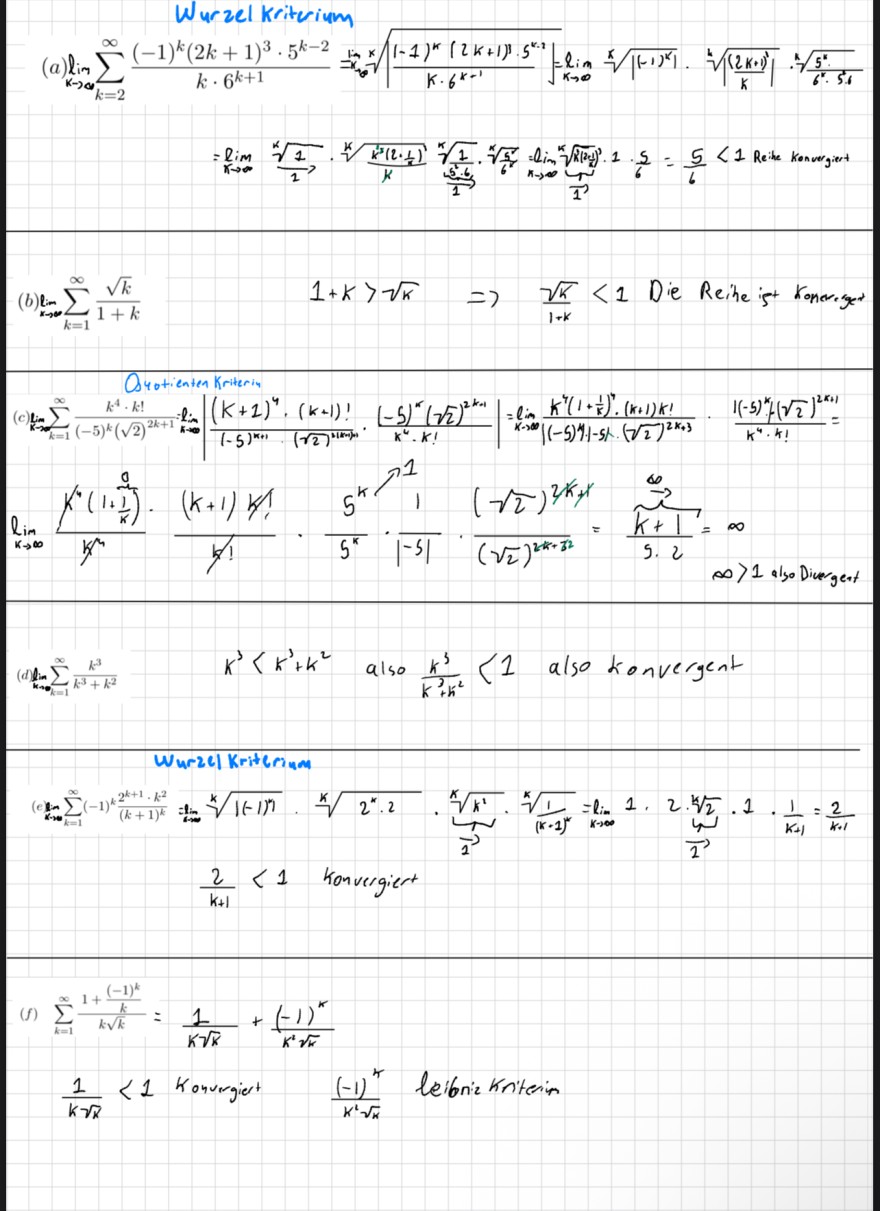 Wurzel Kriterium
(a) lim K→∞ ∑_{k=2}^{∞} (-1)^k(2k+1)^3 · 5^{k-2} / k · 6^{k+1} = lim K→∞ ᴷ√|(-1)^K (2K+1)^3 · 5^{K-2} / K · 6^{K+1}| = lim K→∞ ᴷ√|(-1)^K| · ᴷ√|(2K+1)^3 / K| · ᴷ√5^K / 6^K · 5^2 · 6
= lim K→∞ ᴷ√1 →1 · ᴷ√K^3(2+1/K)^3 / K · ᴷ√1 / 5^2·6 →1 · ᴷ√5^K / 6^K = lim K→∞ ᴷ√K^2(2+1/K)^3 →1 · 1 · 5/6 = 5/6 < 1 Reihe Konvergiert
(b) lim K→∞ ∑_{k=1}^{∞} √k / 1+k 1+K > √K => √K / 1+K < 1 Die Reihe ist
Quotienten Kriterium
(c) lim K→∞ ∑_{k=1}^{∞} k^4 · k! / (-5)^k(√2)^{2k+1} = lim K→∞ |(K+1)^4 · (K+1)! / (-5)^{K+1} · (√2)^{2(K+1)+1} · (-5)^K (√2)^{2K+1} / K^4 · K!| = lim K→∞ K^4(1+1/K)^4 · (K+1) K! / |(-5)^K| |-5| · (√2)^{2K+3} · |(-5)^K| (√2)^{2K+1} / K^4 · K! =
lim K→∞ K^4 (1+1/K) 0 / K^4 · (K+1) K! / K! · 5^K / 5^K →1 · 1 / |-5| · (√2)^{2K+1} / (√2)^{2K+3 2} = K+1 →∞ / 5·2 = ∞
∞ > 1 also Divergent
(d) lim K→∞ ∑_{k=1}^{∞} k^3 / k^3 + k^2 K^3 < K^3+K^2 also K^3 / K^3+K^2 < 1 also konvergent
Wurzel Kriterium
(e) lim K→∞ ∑_{k=1}^{∞} (-1)^k 2^{k+1} · k^2 / (k+1)^k = lim K→∞ ᴷ√|(-1)^K| · ᴷ√2^K · 2 · ᴷ√K^2 →1 · ᴷ√1 / (K+1)^K = lim K→∞ 1 · 2 · ᴷ√2 →1 · 1 · 1 / K+1 = 2 / K+1
2 / K+1 < 1 Konvergiert
(f) ∑_{k=1}^{∞} 1 + (-1)^k / k / k√k = 1 / K√K + (-1)^K / K^2√K
1 / K√K < 1 Konvergiert (-1)^K / K^2√K leibniz Kriterium